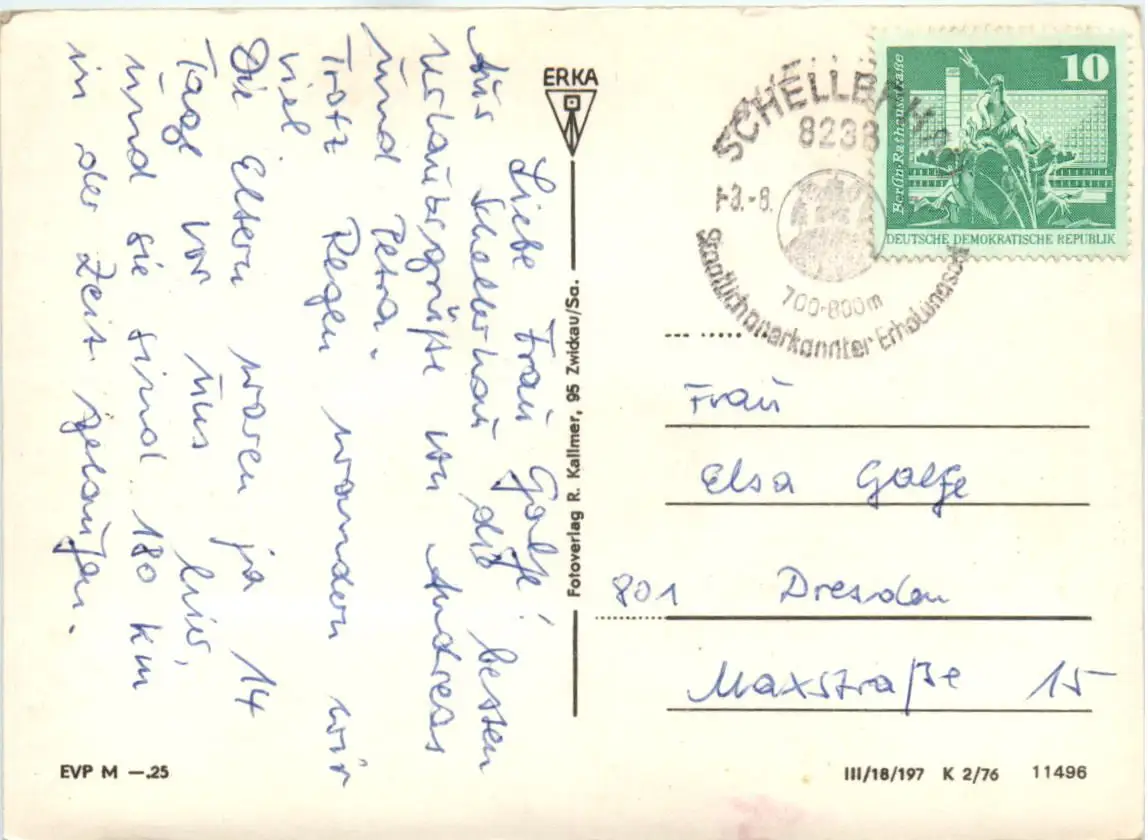 Liebe Frau Golfe!
Aus Schellerhau die besten
Urlaubergrüße von Andreas
und Petra.
Trotz Regen wandern wir
viel
Die Eltern waren ja 14
Tage vor uns hier,
und sie sind 180 km
in der Zeit gelaufen.
EVP M —.25
ERKA
Fotoverlag R. Kallmer, 95 Zwickau/Sa.
8238
-8.
700-800m
Staatlich anerkannter
10
Berlin·Rathausstraße
DEUTSCHE DEMOKRATISCHE REPUBLIK
Frau
Elsa Golfe
801 Dresden
Maxstraße 15
III/18/197 K 2/76 11496